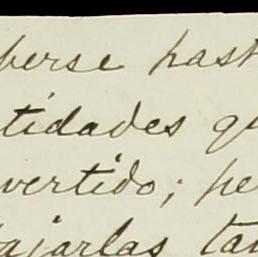 berse hast
tidades qu
vertido; pe
bajarlas tan